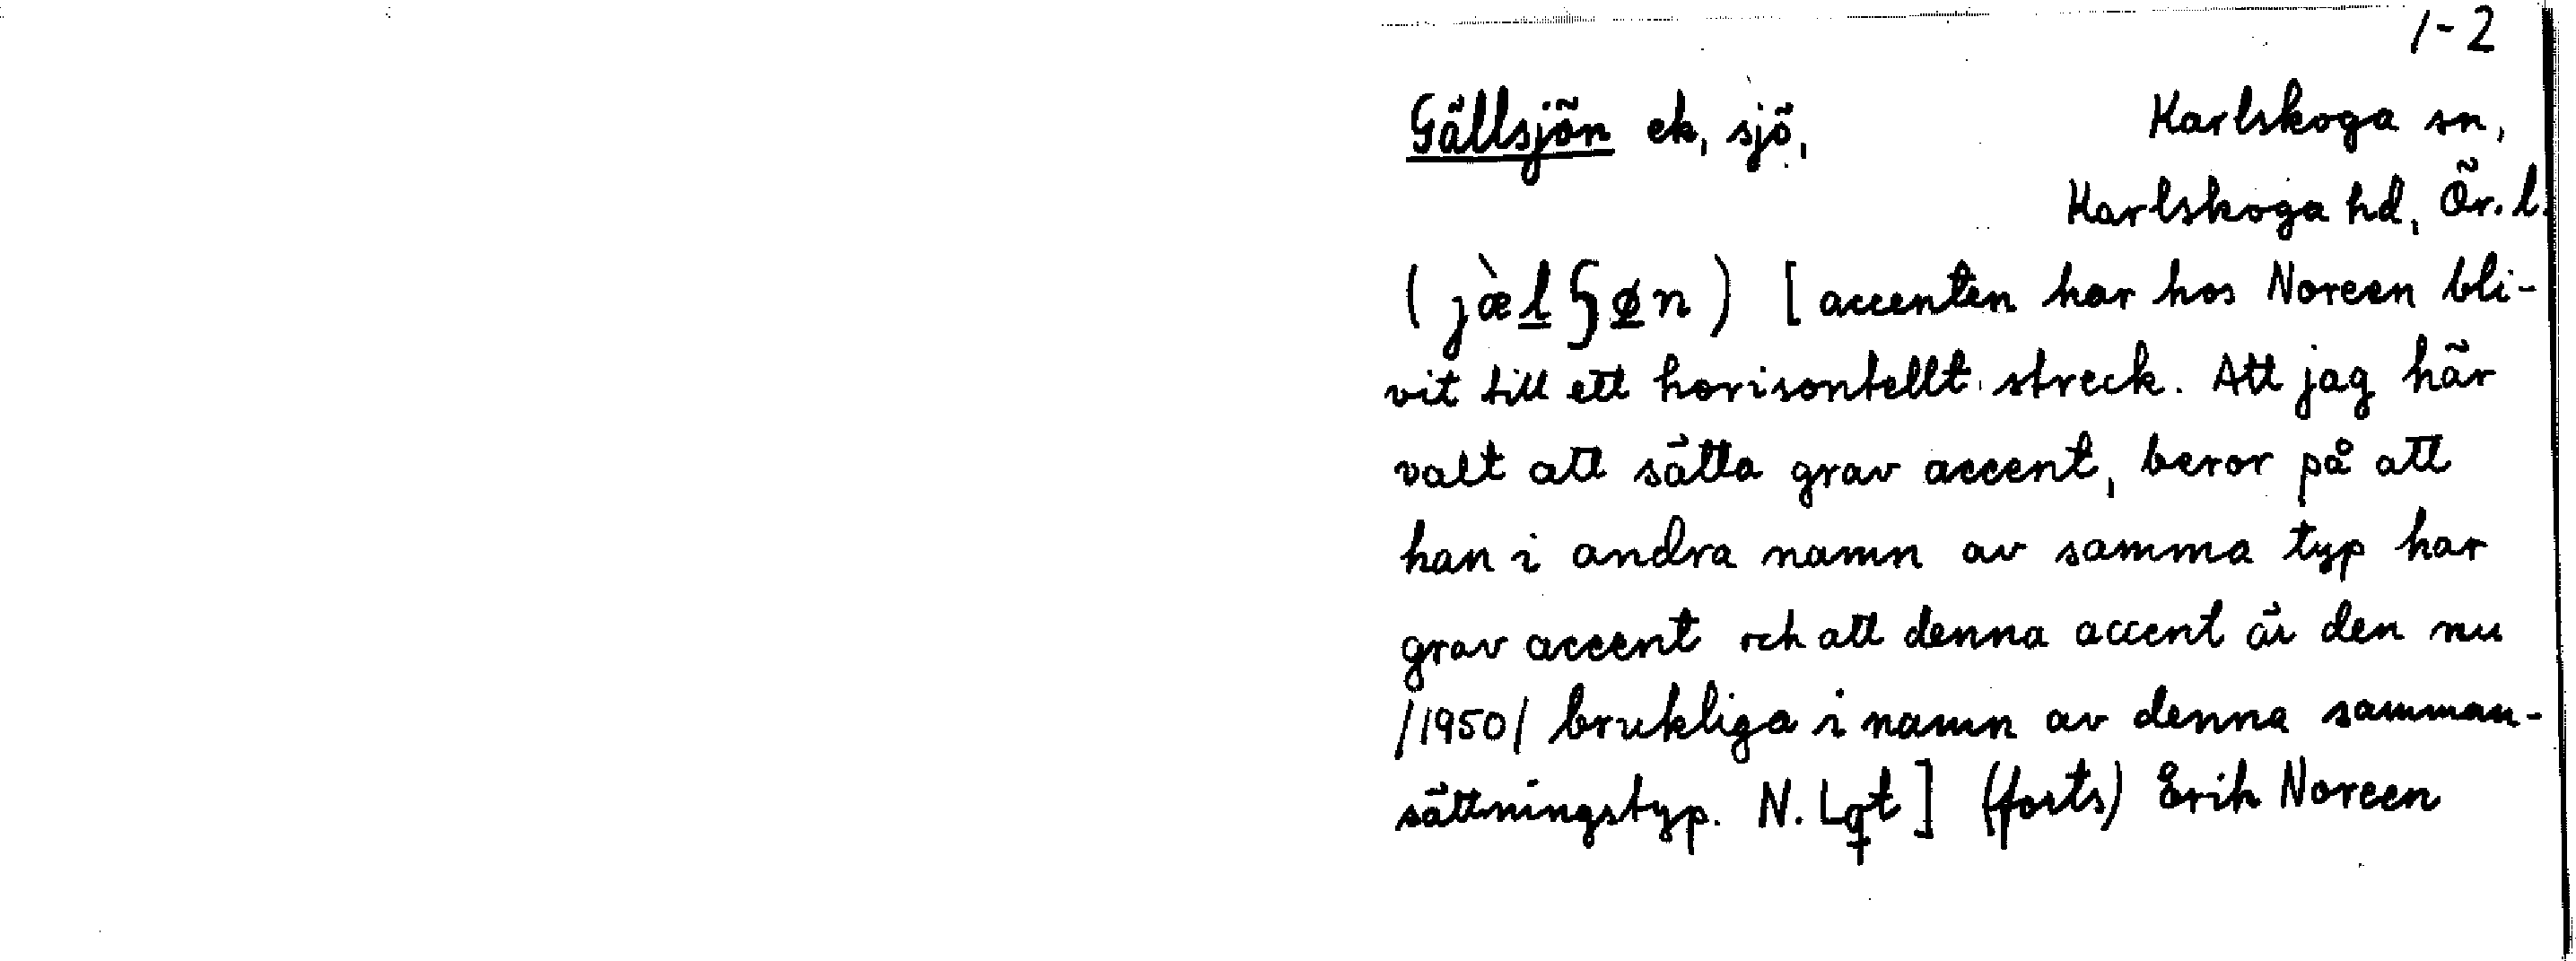 1-2
Gällsjön ek, sjö, Karlskoga sn,
Karlskoga hd, Ör. l.
[accenten har hos Noreen bli-
vit till ett horisontellt streck. Att jag här
valt att sätta grav accent, beror på att
han i andra namn av samma typ har
grav accent och att denna accent är den nu
/1950/ brukliga i namn av denna samman-
sättningstyp. N. Lqt] (forts) Erik Noreen